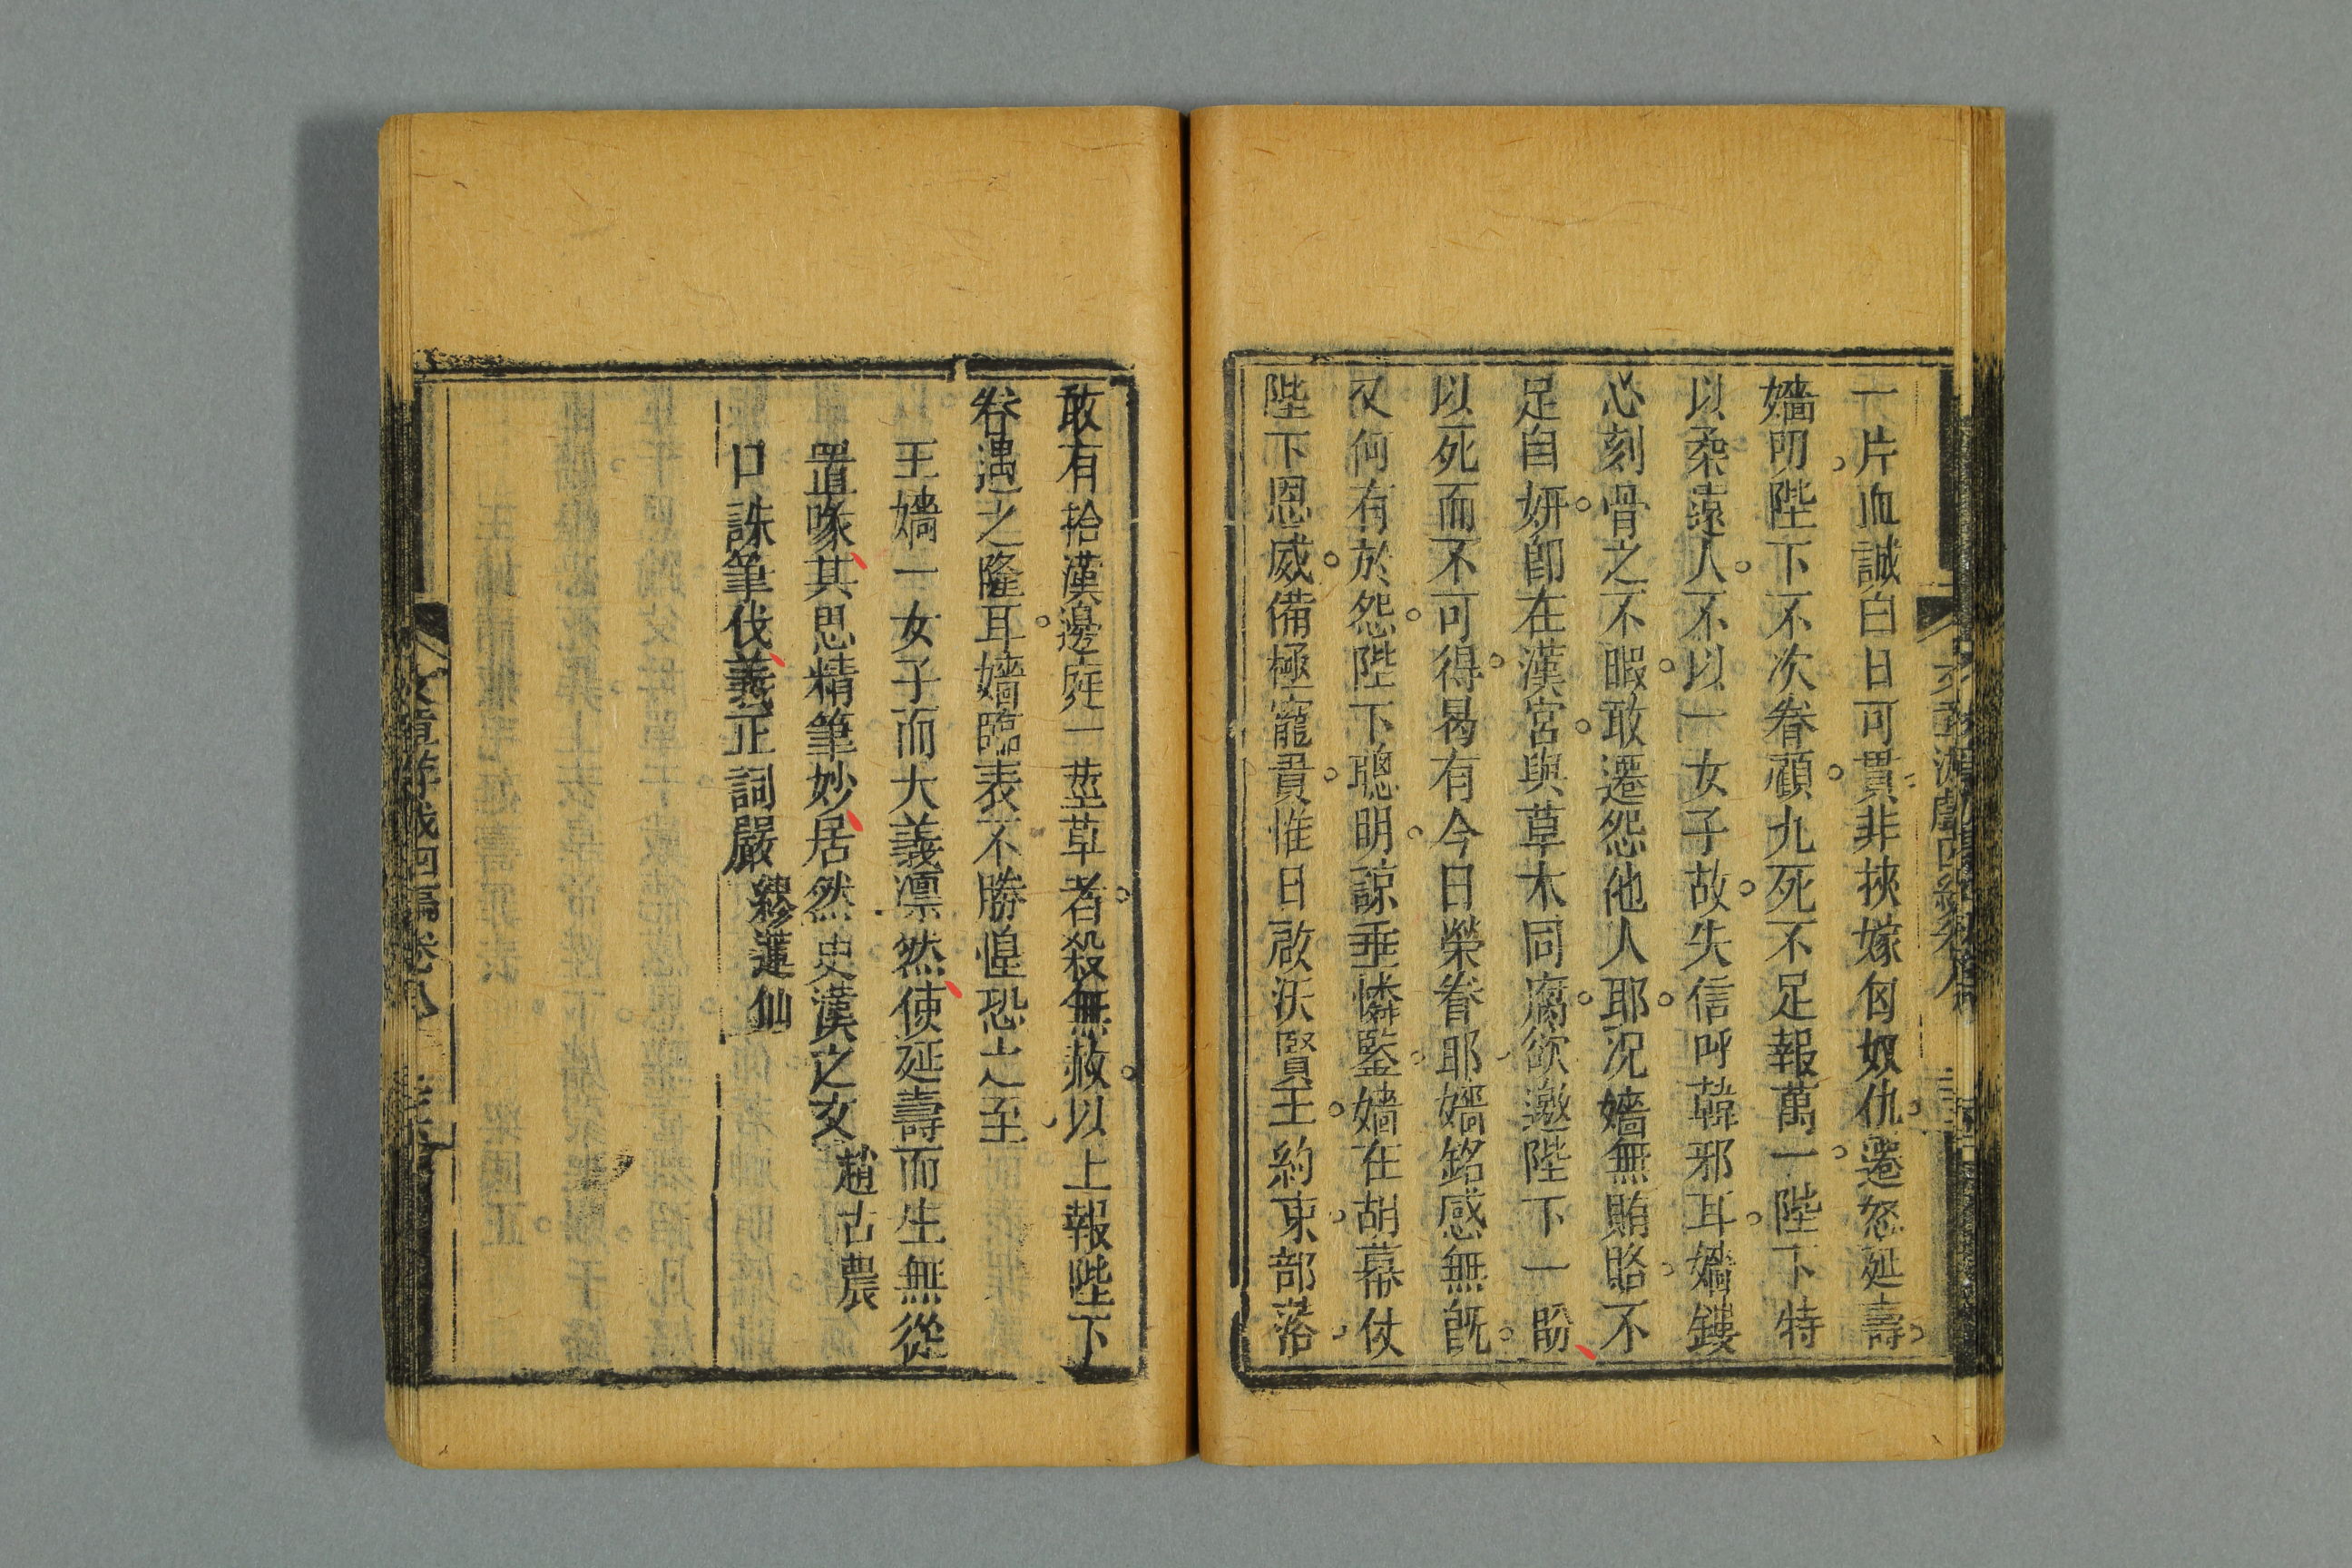 一片血誠白日可貫非挾嫁匈奴仇遷怒延壽
嬙叨陛下不次眷顧九死不足報萬一陛下特
以柔遠人不以一女子故失信呼韓邪耳嬙鏤
心刻骨之不暇敢遷怨他人耶况嬙無賄賂不
足自妍卽在漢宮與草木同腐欲邀陛下一盼
以死而不可得曷有今日榮眷耶嬙銘感無旣
又何有於怨陛下聰明諒垂憐鑒嬙在胡幕仗
陛下恩威備極寵貴惟日啟沃賢王約束部落
敢有拾漢邊庭一莖草者殺無赦以上報陛下
眷遇之隆耳嬙臨表不勝惶恐之至
王嬙一女子而大義凛然使延壽而生無從
置喙其思精筆妙居然史漢之文趙古農
口誅筆伐義正詞嚴繆蓮仙
文章游戲四編卷八